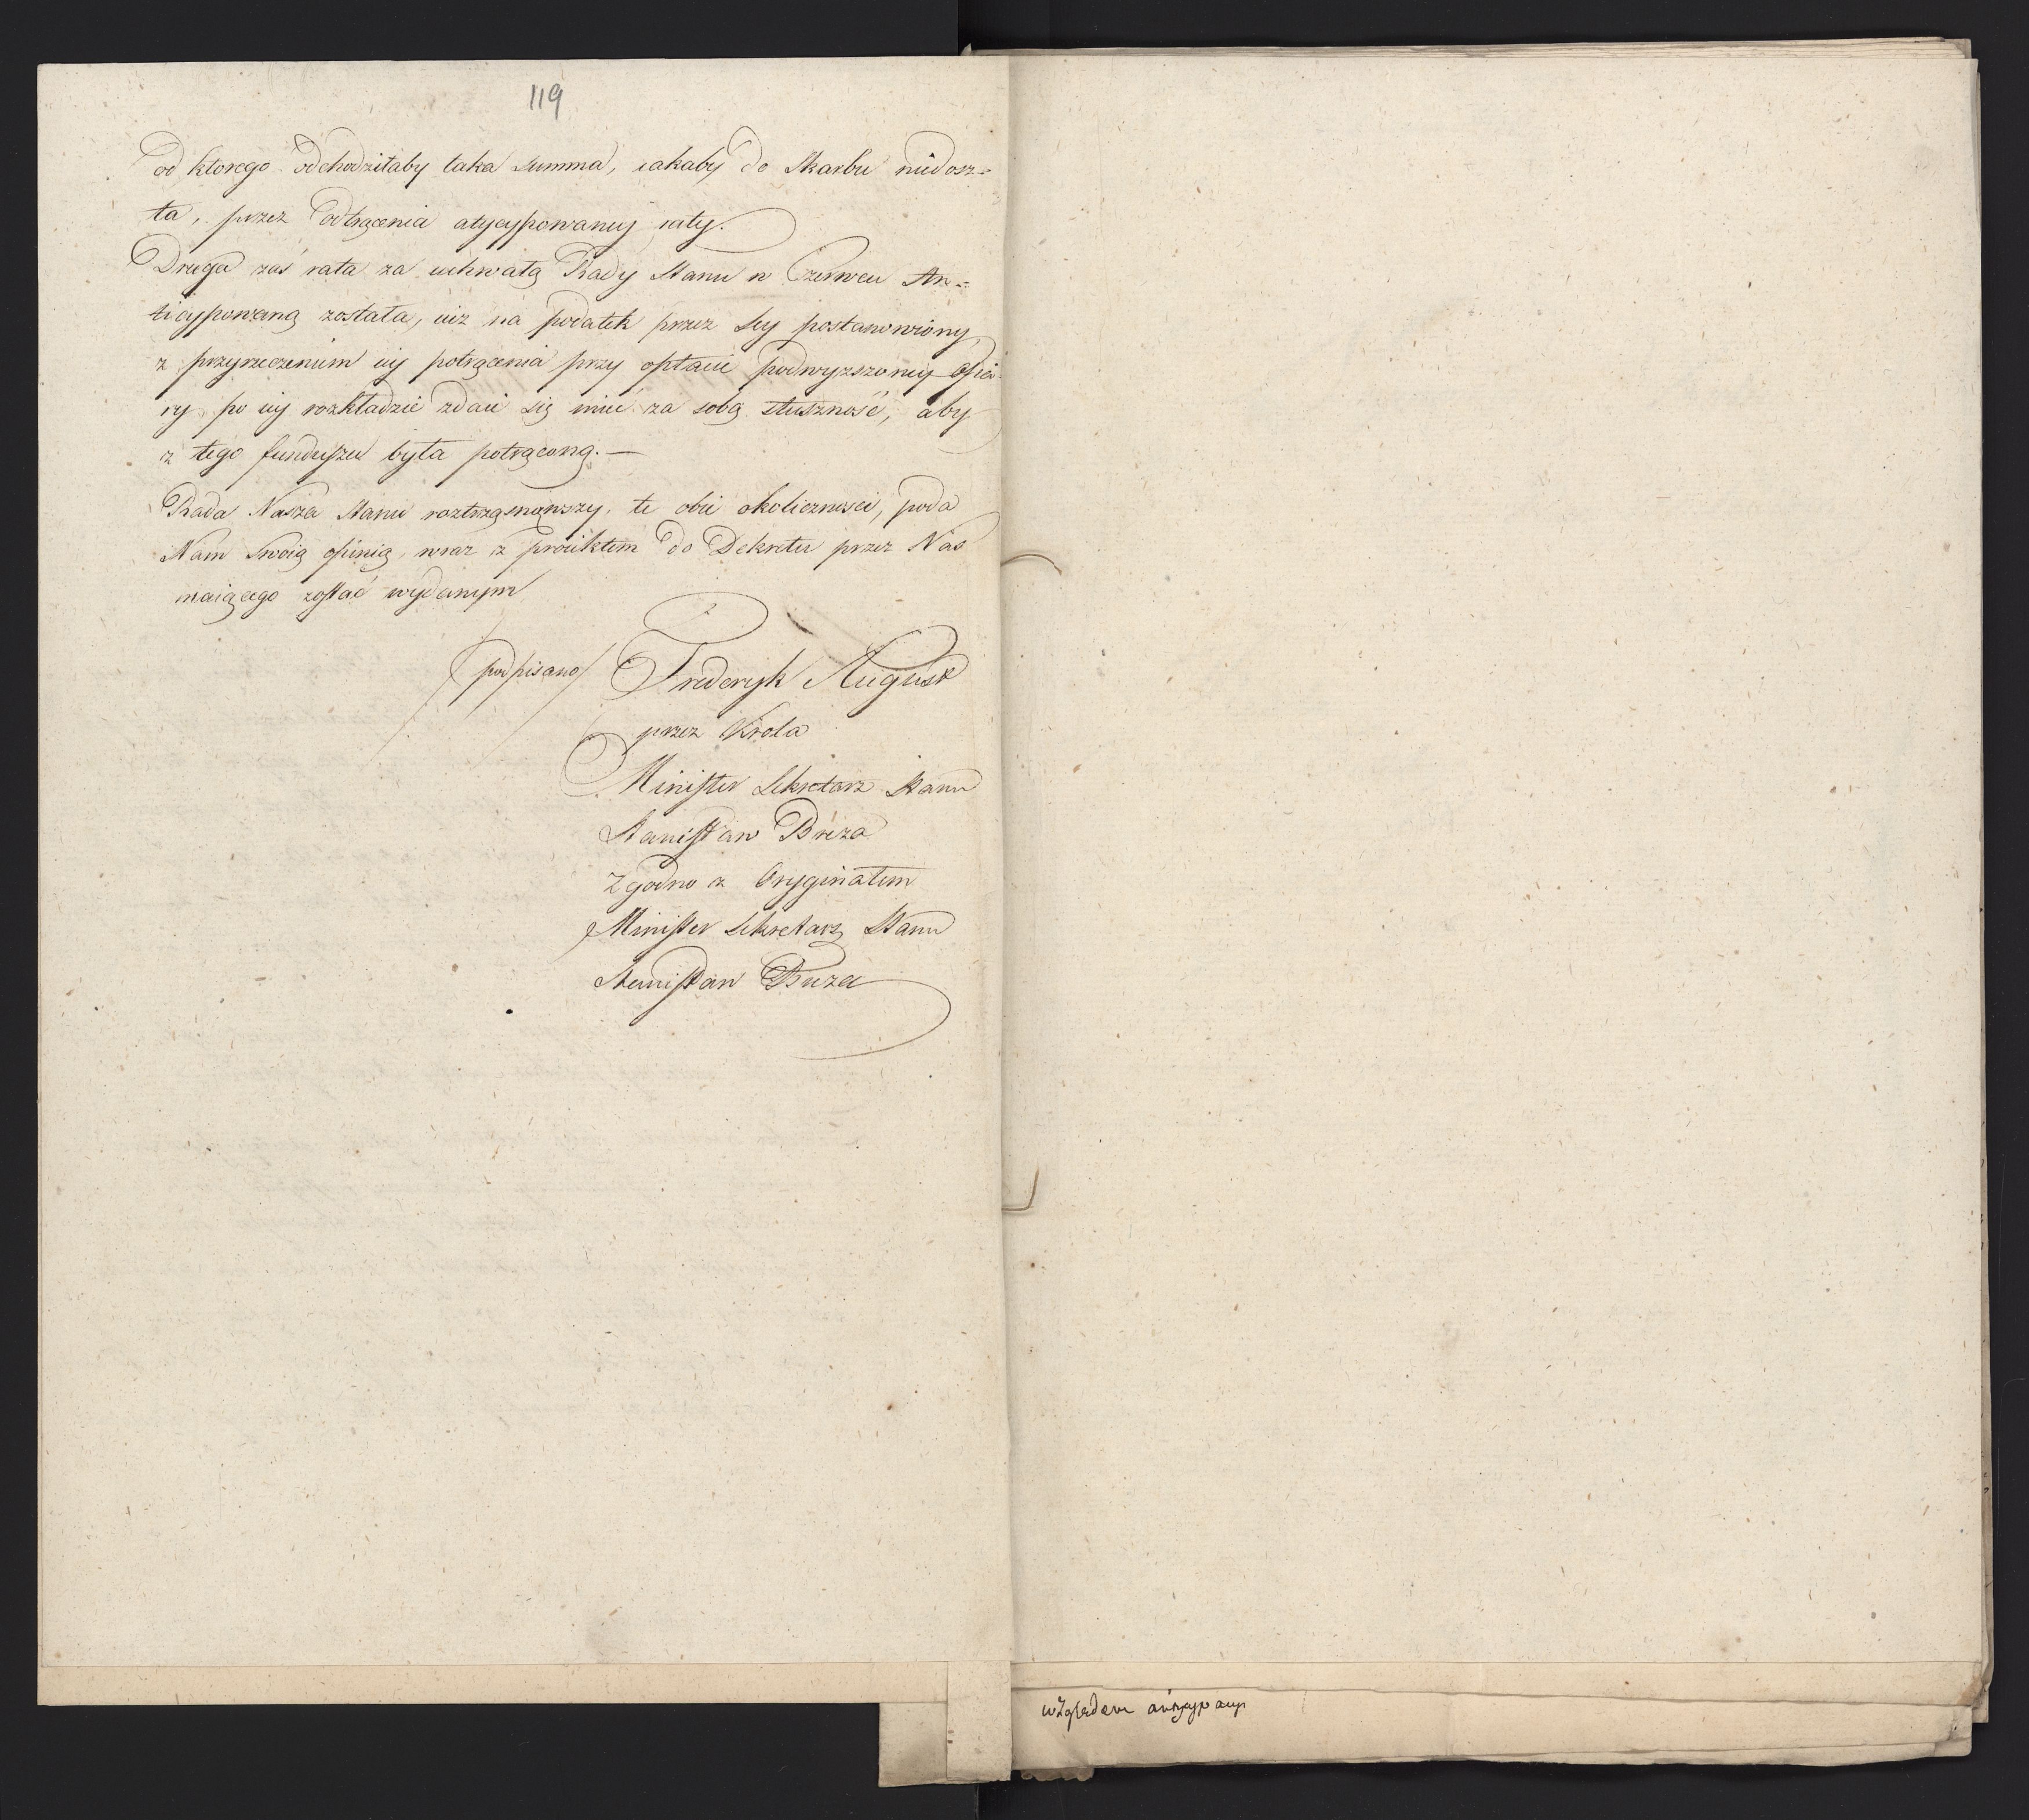 119
od ktorego odchodziłaby taka summa, iakaby do Skarbu niedosz=
ła, przez odtrącenia atycypowaney raty.
Druga zaś rata za uchwałą Rady Stanu w Czerwcu An=
ticypowaną została, iuż na podatek przez Sey postanowiony
z przyrzeczeniem iey potrącenia przy opłacie podwyższoney Ofia-
ry, po iey rozkładzie zdaie się mieć za sobą słuszność, aby
z tego funduszu była potrąconą. —
Rada Nasza Stanu roztrząsnąwszy te obie okoliczności, poda
Nam Swoią opinią, wraz z proiektem do Dekretu przez Nas
maiącego zostać wydanym
/podpisano/ Frederyk August
przez Krola
Minister Sekretarz Stanu
Stanisław Breza
Zgodno z Oryginałem
Minister Sekretarz Stanu
Stanisław Breza
względem antycypacyi